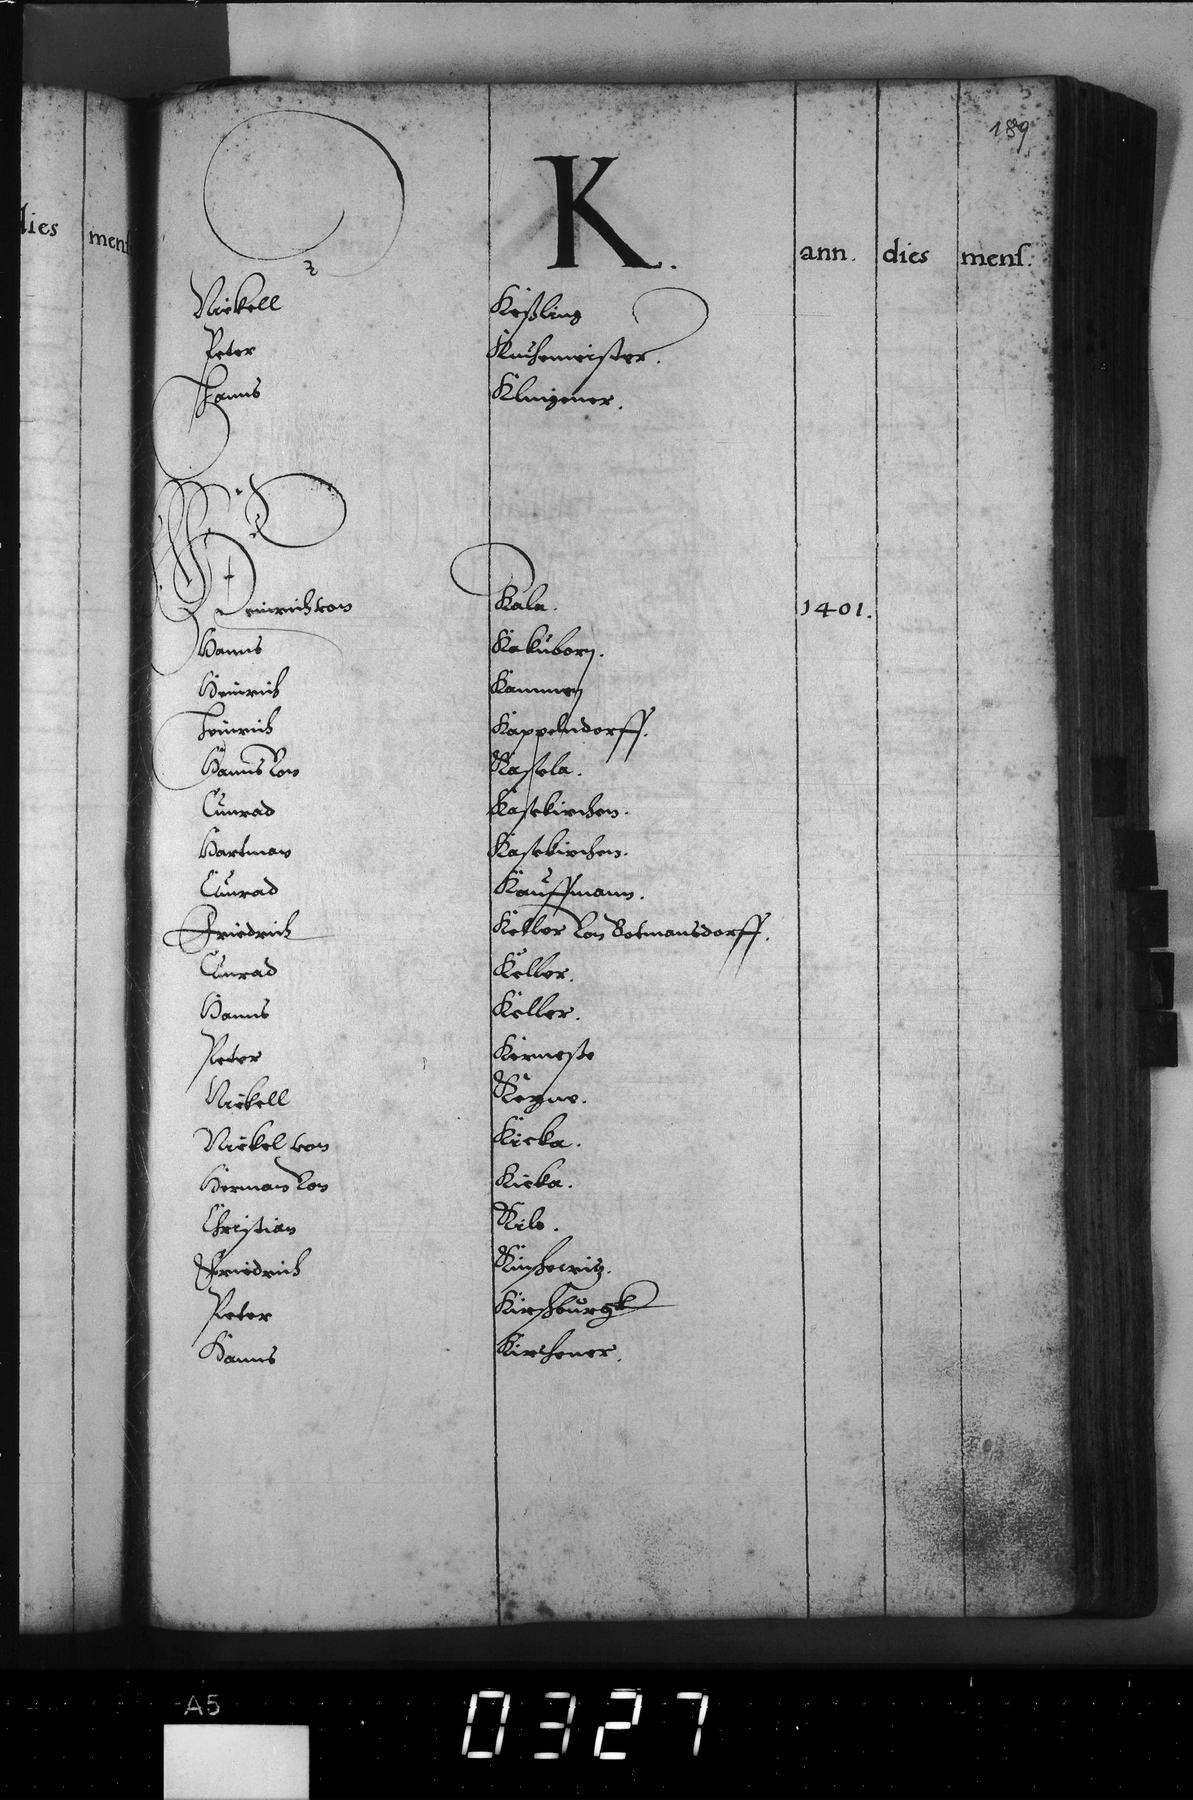 189
K.
dies mens
ann. dies mens.
Nickell Keßling
Peter Kuchemeister.
Hanns Klingener.
Heinrich von Kala. 1401.
Hanns Kakuborn.
Heinrich Kammen
Heinrich Kappelndorff.
Hanns Von Kastela.
Cunrad Kasekirchen.
Hartman Kasekirchen.
Cunrad Kauffmann.
Friedrich Ketler Von Botmansdorff.
Cunrad Keller.
Hanns Keller.
Peter Kirmeße
Nickell Keyne.
Nickel von Kicka.
Herman Von Kicka.
Christian Kilo.
Friedrich
Peter Kirsburgk
Hanns Kirchener.
A5 0327